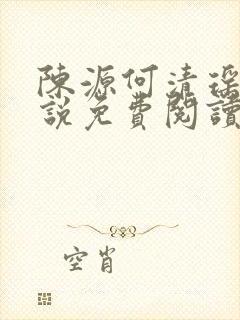 陳源何清瑤
說免費閱讀
空肖